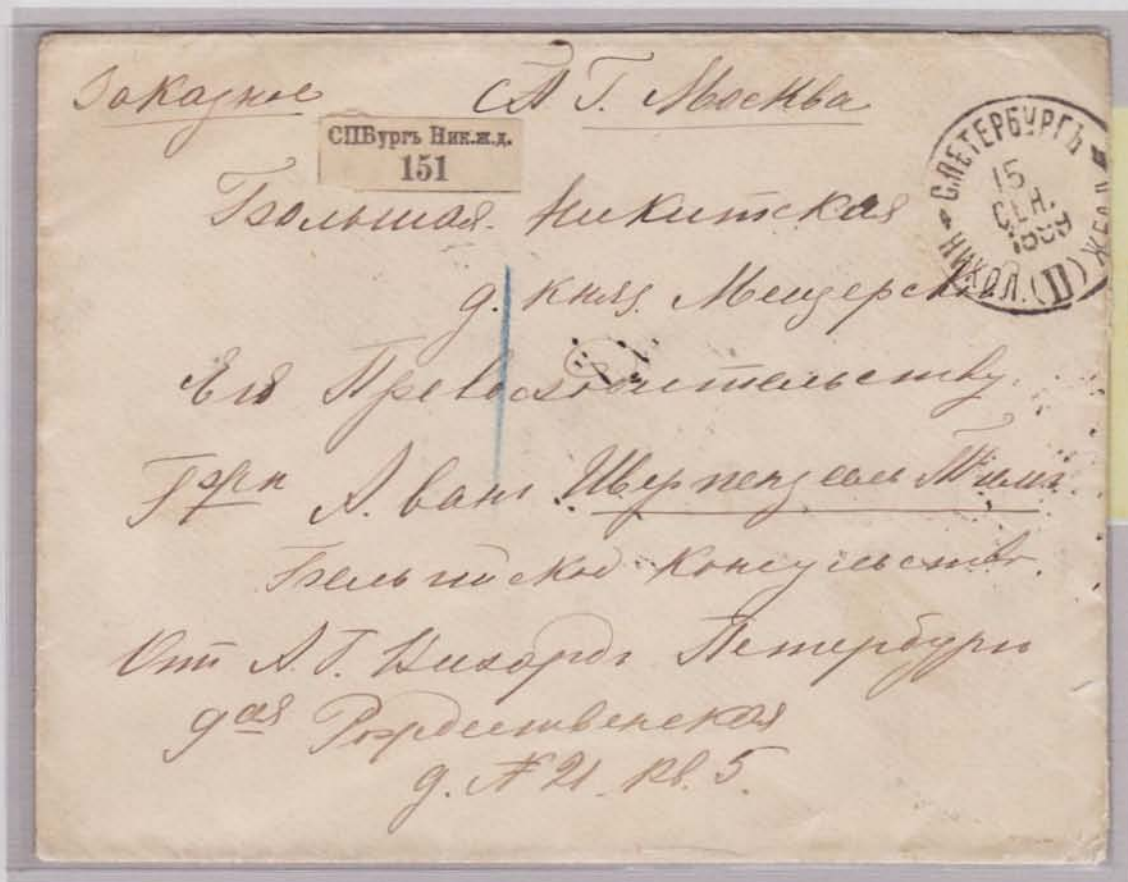 Заказное
Г. Москва
СПБургъ Ник.ж.д.
151
С.ПЕТЕРБУРГЪ
15
СЕН.
НИКОЛ. (II) ЖЕЛ Д
Большая Никитская
д. княз. Мещерск
Его Превосходительству
А. ванъ
Бельгийское Консульство.
От А. Г. Петербург
ая Рождественская
д. № 21 кв. 5.